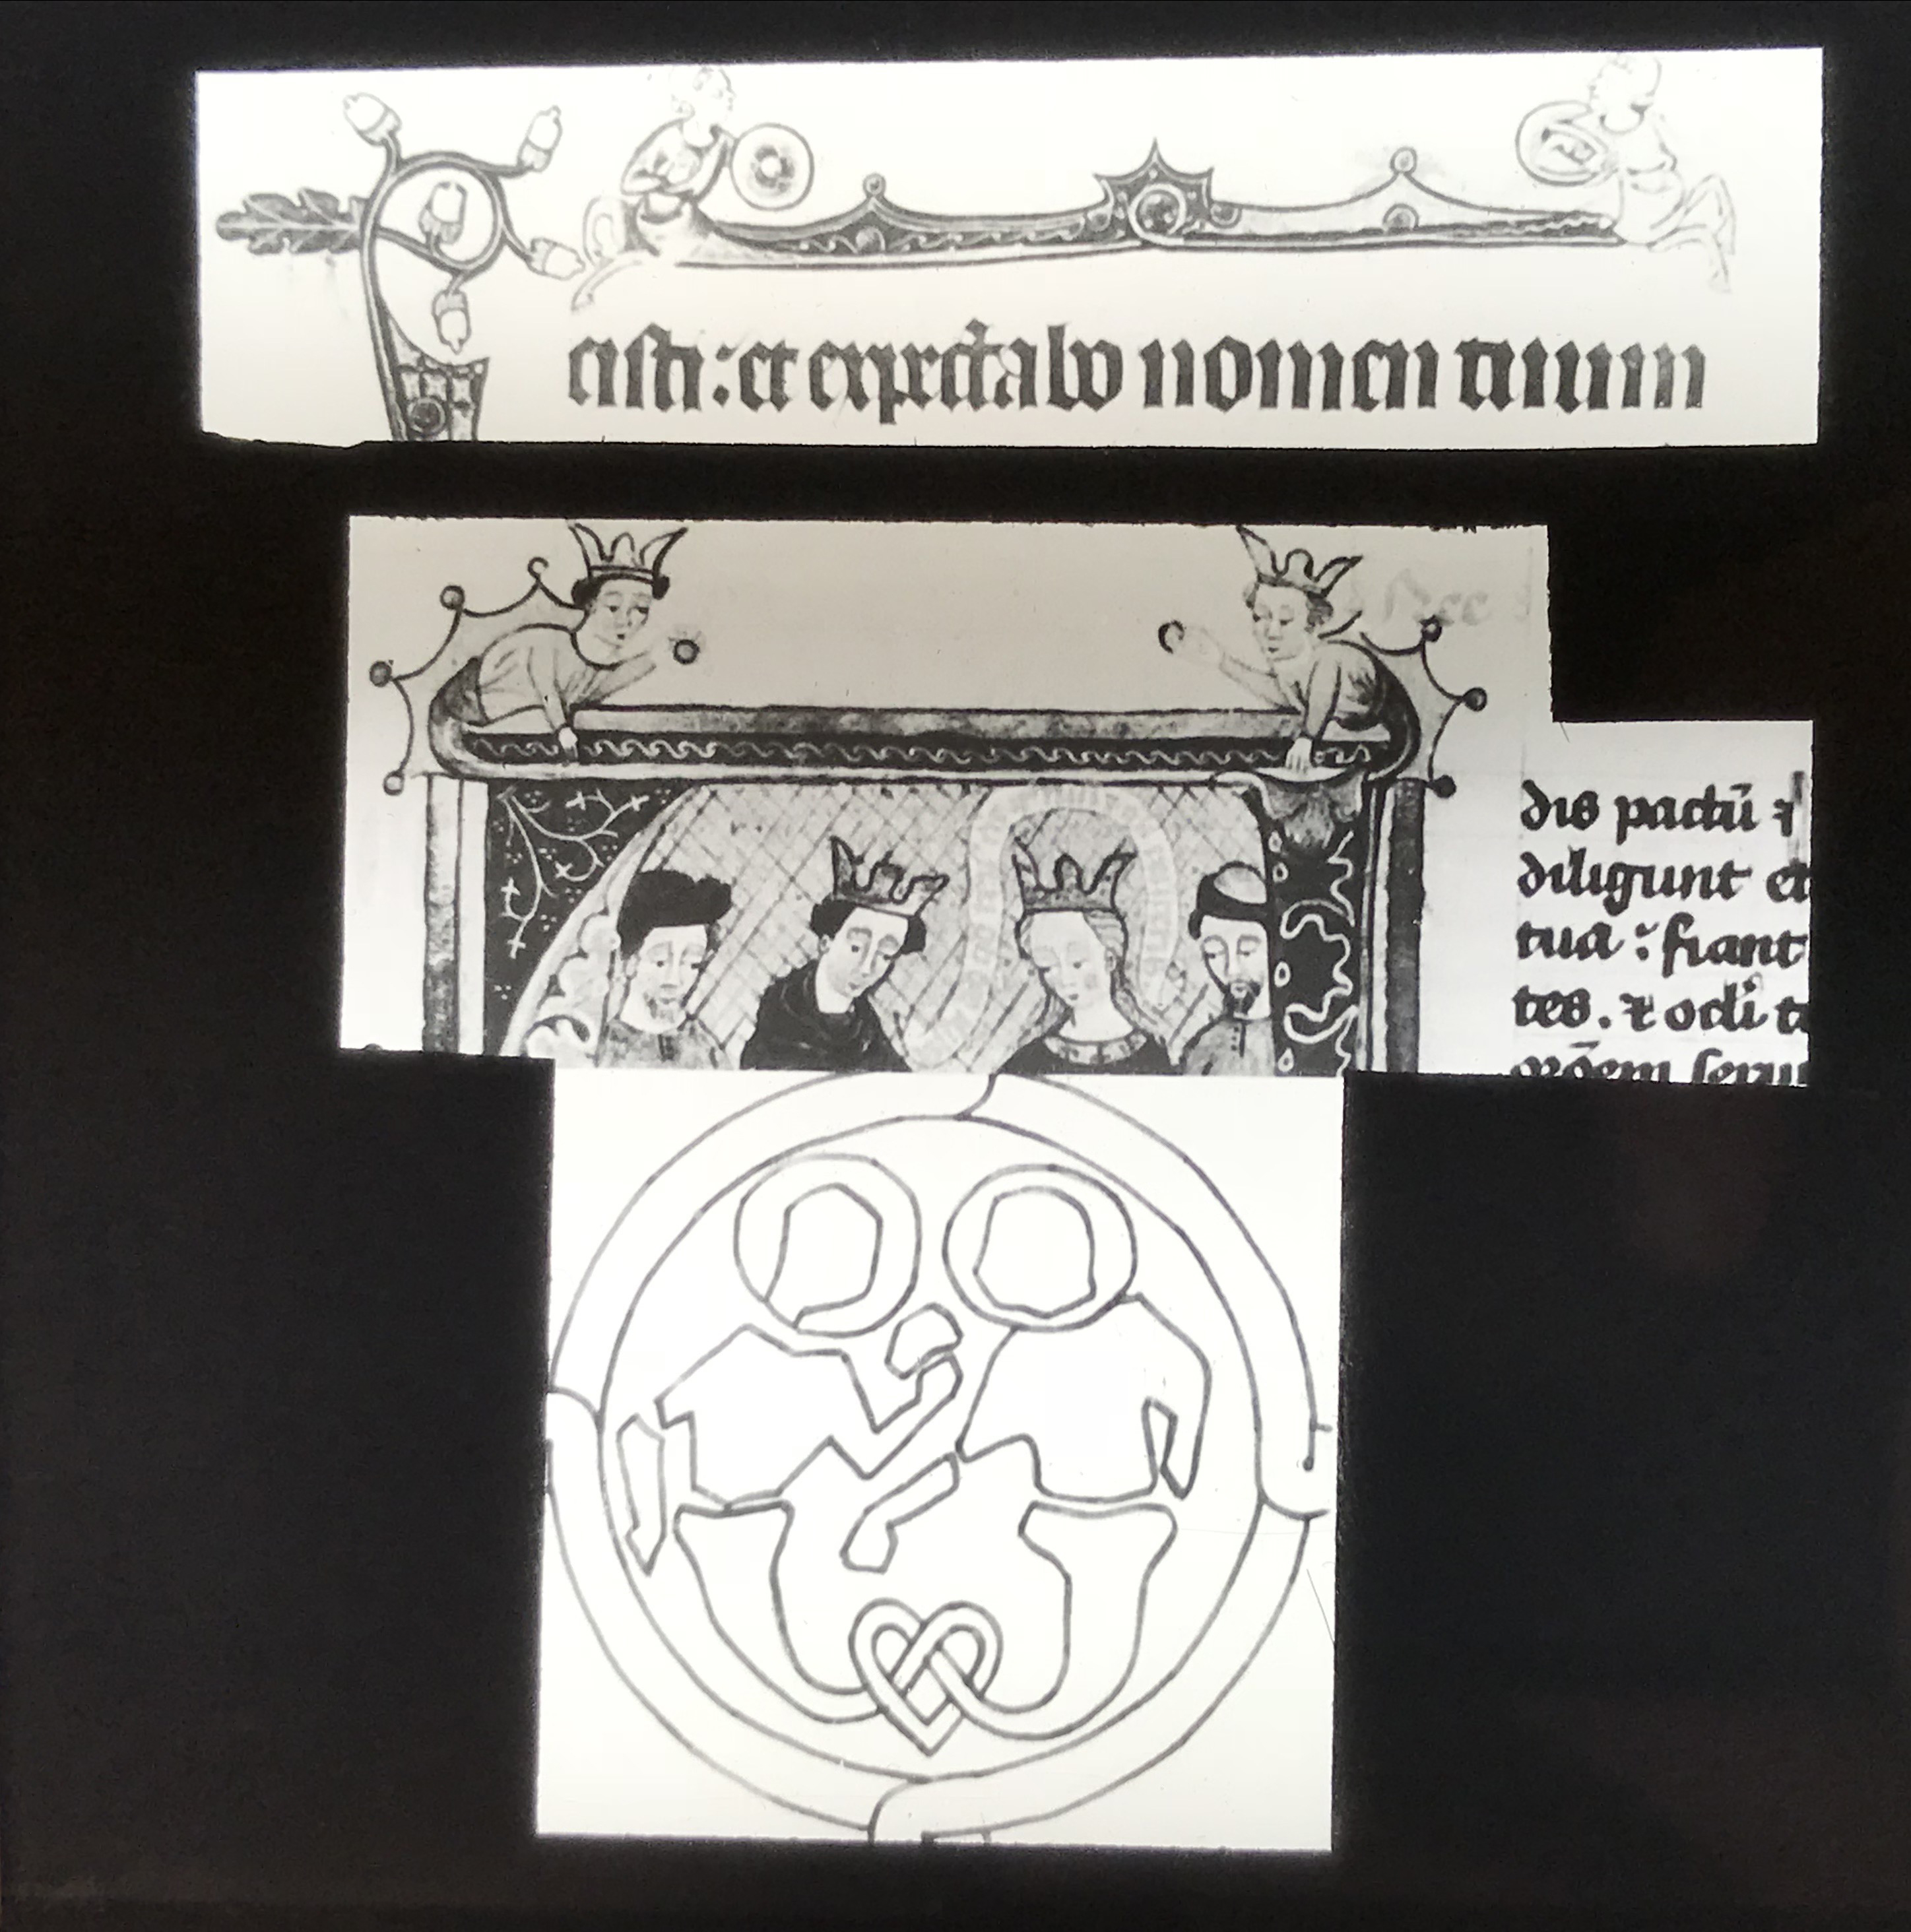 cisti : et expectabo nomen tuum
dis pactū ⁊
diligunt et
tua : fiant
tes . ⁊ odi t
orōem seru